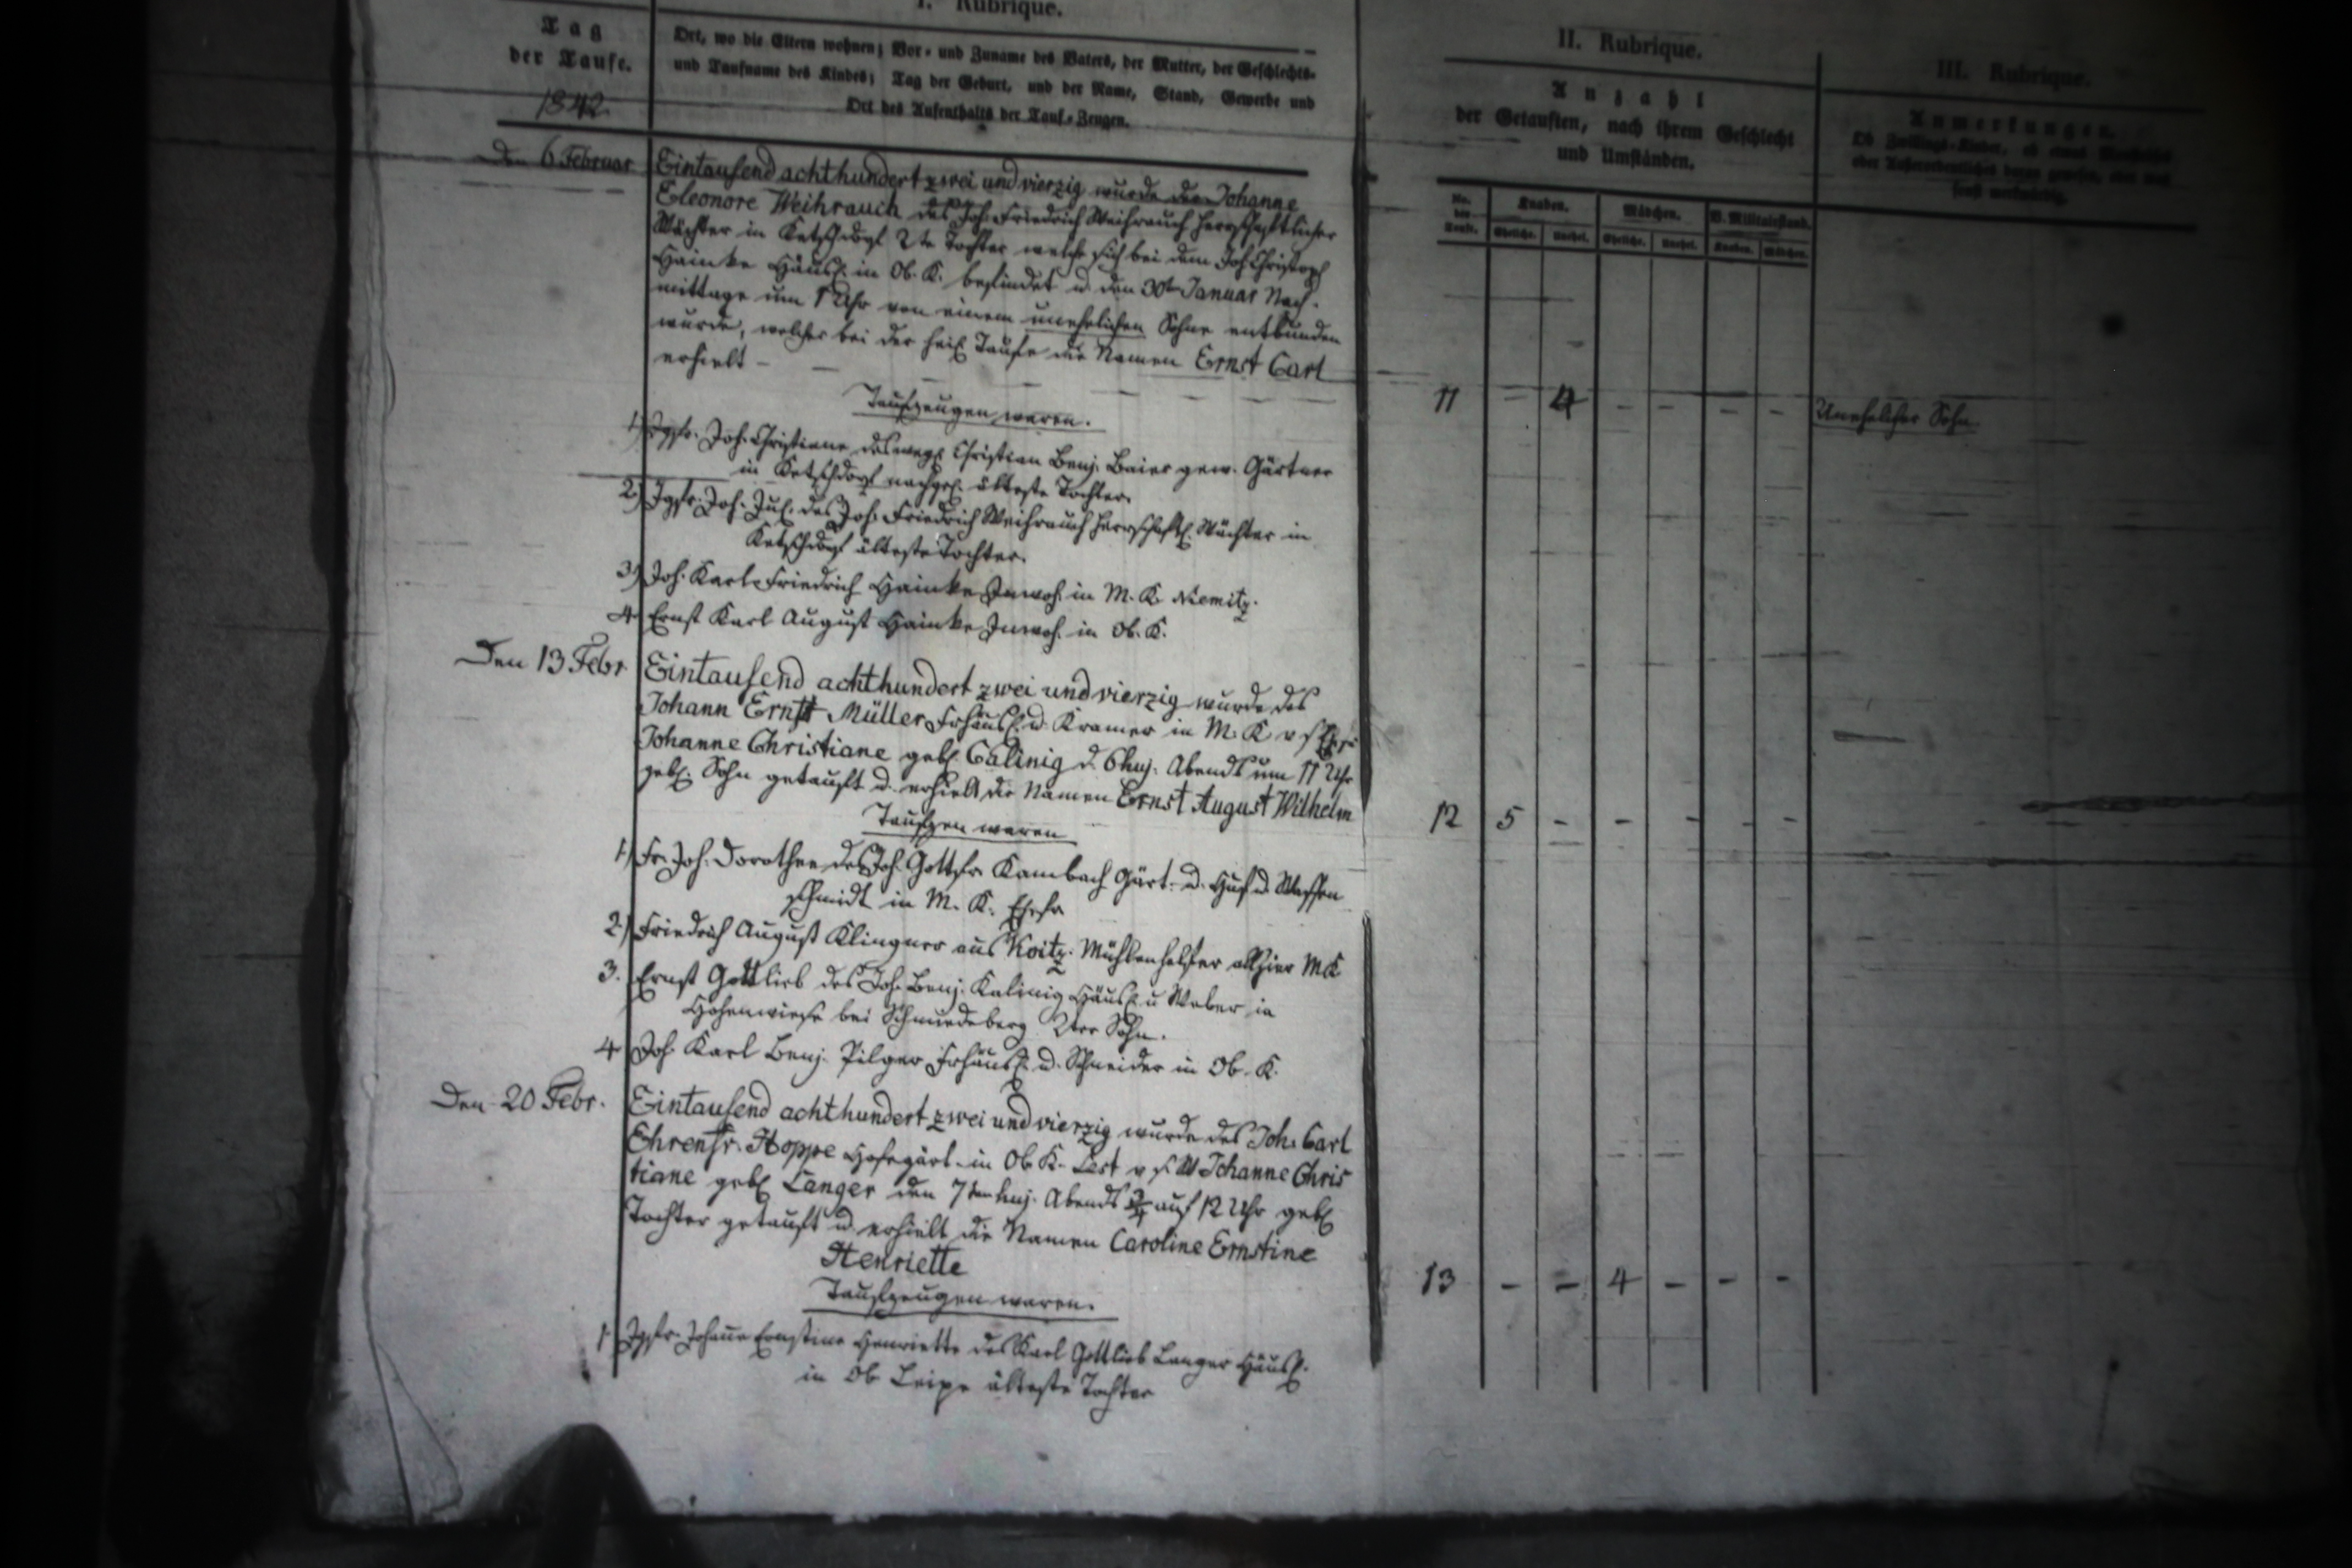 I. Rubrique.
Tag
der Taufe.
1842.
Ort, wo die Eltern wohnen; Vor- und Zuname des Vaters, der Mutter, der Geschlechts-
und Taufname des Kindes; Tag der Geburt, und der Name, Stand, Gewerbe und
Ort des Aufenthalts der Tauf-Zeugen.
II. Rubrique.
Anzahl
der Getauften, nach ihrem Geschlecht
und Umständen.
III. Rubrique.
Anmerkungen.
No. der Taufe.
Knaben. Mädchen. V. Militairstand.
Eheliche. Unehel. Eheliche. Unehel. Knaben. Mädchen.
Den 6 Februar Eintausend achthundert zwei und vierzig wurde die Johanne
Eleonore Weihrauch des Joh. Friedrich Weihrauch herrschaftlicher
Wächter in Ketschdorf 2te Tochter welche sich bei dem Joh Christoph
Hainke Häusl. in Ob. K. befindet u. den 30ten Januar Nach-
mittags um 1 Uhr von einem unehelichen Sohne entbunden
wurde, welcher bei der heil Taufe die Namen Ernst Carl
erhielt -
11 - 4 - - - - Unehelicher Sohn.
Taufzeugen waren.
1) Jgfr. Joh. Christiane des Christian Benj. Baier gew. Gärtner
in Ketschdorf nachgel. älteste Tochter.
2) Jgfr. Joh. Jul. des Joh. Friedrich Weihrauch herrschaftl. Wächter in
Ketschdorf älteste Tochter.
3) Joh. Karl Friedrich Hainke Inwoh. in M. K. Niemitz.
4 Ernst Karl August Hainke Inwoh. in Ob. K.
Den 13 Febr. Eintausend achthundert zwei und vierzig wurde des
Johann Ernst Müller Frhäusl. u. Kramer in M. K. v s
Johanne Christiane geb. Calinig d. 6 huj. Abends um 11 Uhr
geb. Sohn getauft u. erhielt die Namen Ernst August Wilhelm
12 5 - - - - -
Taufzen waren
1) Fr. Joh. Dorothee des Joh. Gottfr Kambach Gärt. u. Huf u. Waffen
schmidt in M. K. Ehefr
2) Friedrich August Klingner aus Koitz. Mühlenhelfer allhier M K
3. Ernst Gottlieb des Joh. Benj. Kalinig Häusl. u Weber in
Hohenwiese bei Schmiedeberg 2ter Sohn.
4 Joh Karl Benj. Pilger Frhäusl. u. Schneider in Ob. K.
Den 20 Febr. Eintausend achthundert zwei und vierzig wurde des Joh. Carl
Ehrenfr. Hoppe Hofegärt. in Ob. K. Lest v s. W Johanne Chris
tiane geb Langer den 7ten huj. Abends 3/4 auf 12 Uhr geb
Tochter getauft u. erhielt die Namen Caroline Ernstine
Henriette
13 - - 4 - - -
Taufzeugen waren.
1. Jgfr. Johane Ernstine Henriette des Karl Gottlieb Langer Häusl.
in Ob Leipe älteste Tochter